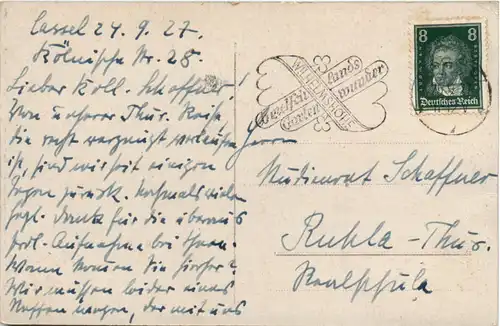 Cassel 24.9.27.
Kölnische Str. 28.
Lieber Koll. Schaffner!
Von unserer Thür. Reise,
die recht vergnügt verlaufen
ist, sind wir seit einigen
Tagen zurück. Nochmals vielen
herzl. Dank für die überaus
frdl. Aufnahme bei Ihnen.
Wann kommen Sie hierher?
Wir müssen leider eines
Neffen wegen, der mit uns
WILHELMSHÖHE
lands
wunder
Garten
8 8
Deutsches Reich
Herrn
Studienrat Schaffner
Ruhla-Thür.
Realschule